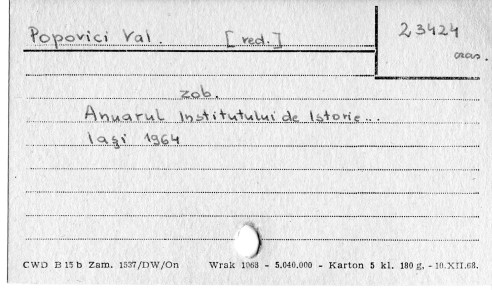 Popovici Val. [red.]
23424
czas.
zob.
Anuarul Institutului de Istorie...
Iaşi 1964
CWD B 15 b Zam. 1537/DW/On Wrak 1068 - 5.040.000 - Karton 5 kl. 180 g. - 10.XII.68.